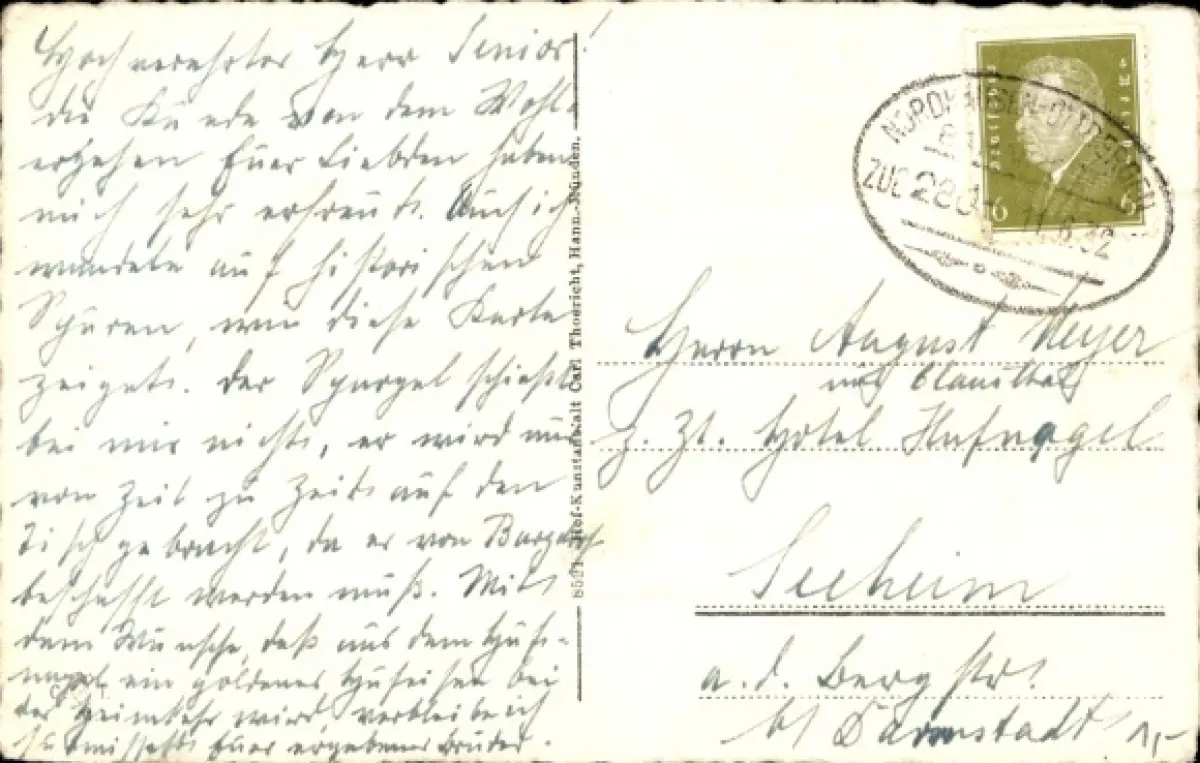 Hochverehrter Herr Senior!
die Kunde von dem Wohl-
ergehen Euer Liebden haben
mich sehr erfreut. Auch ich
wandele auf historischen
Spuren, wie diese Karte
zeigt. Der Spargel schießt
bei mir nicht, er wird nur
von Zeit zu Zeit auf den
Tisch gebracht, da er von Burgdorf
beschafft werden muß. Mit
dem Wunsche, daß aus dem Huf-
nagel ein goldenes Hufeisen bei
der Heimkehr wird verbleibe ich
Euer ergebener Bruder.
Hof-Kunstanstalt Carl Thoericht, Hann.-Münden.
Deutsches Reich
6 6
NORDHAUSEN-OTTBERGEN
ZUG
Herrn August Meyer
z. Zt. Hotel Hufnagel
Seeheim
a. d. Bergstr.
b/ Darmstadt
1,-